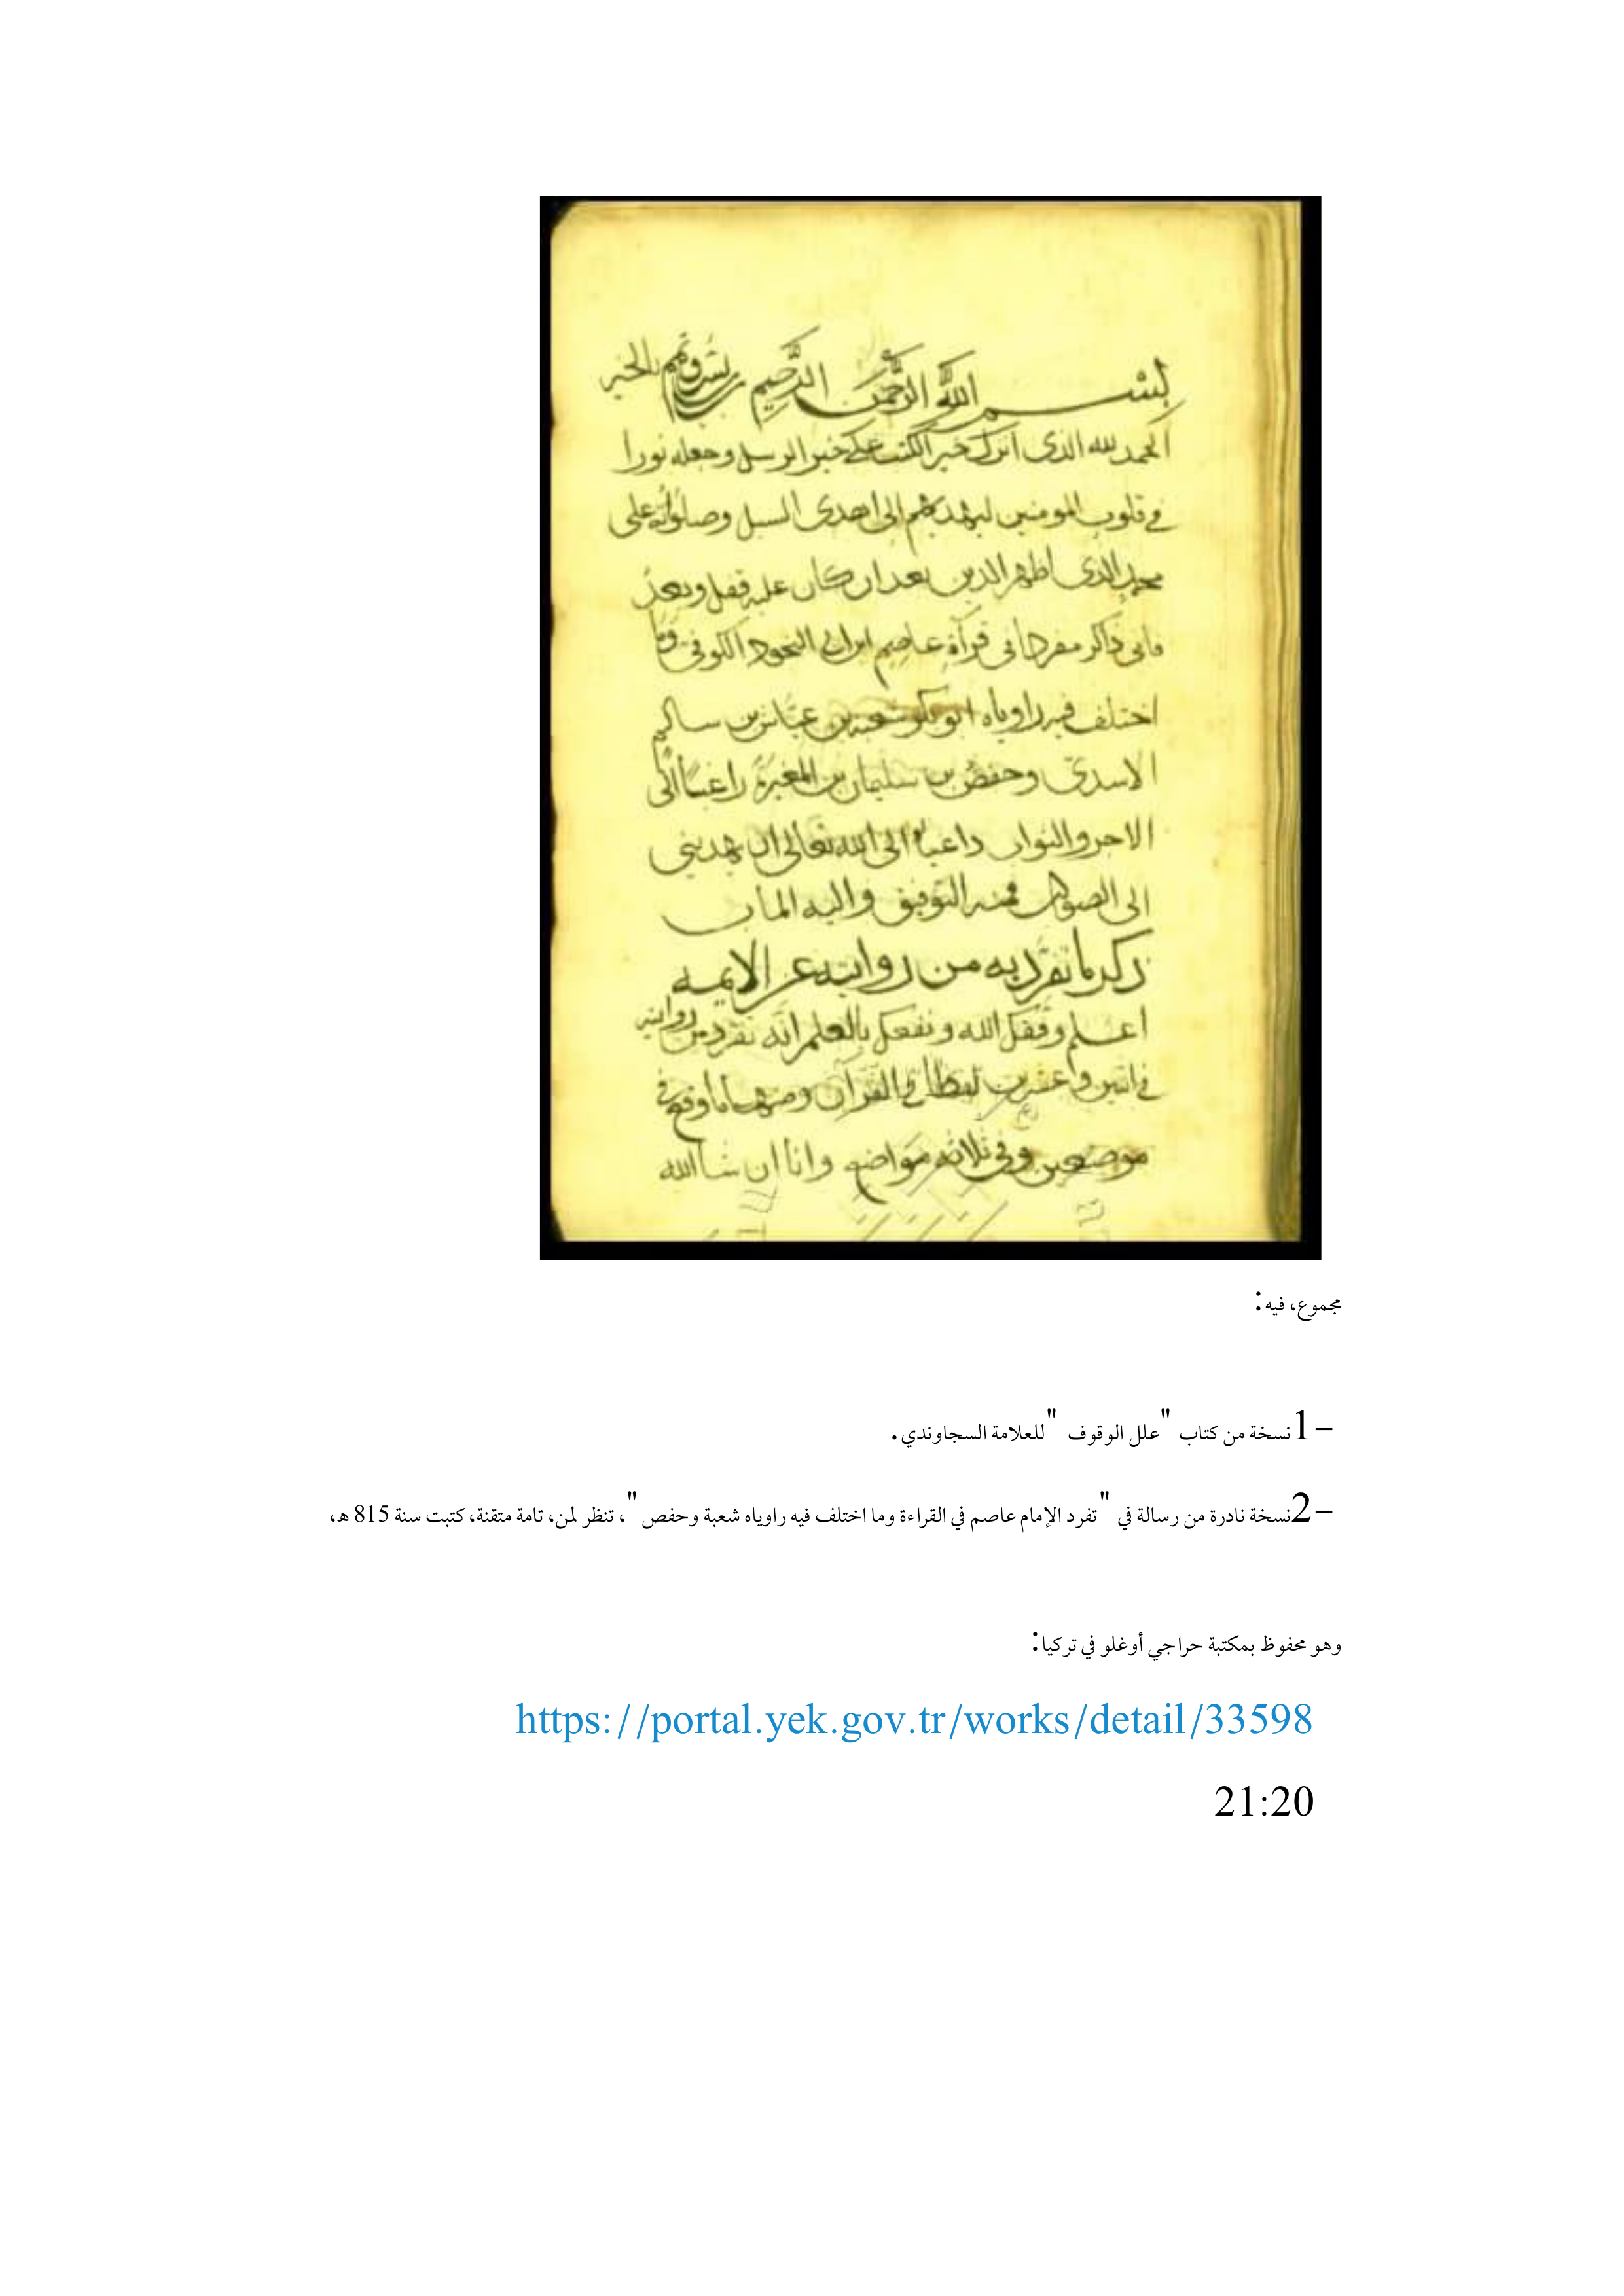 بسم الله الرحمن الرحيم رب يسر وتمم بالخير
الحمد لله الذى انزل خير الكتب على خير الرسل وجعله نورا
فى قلوب المومنين ليهديهم الى اهدى السبل وصلواته على
محمد الذى اظهر الدين بعد ان كان عليه قفل وبعد
فانى ذاكر مفردا فى قرآة عاصم ابن ابى النجود الكوفى وما
اختلف فيه راوياه ابو بكر شعبة بن عياش بن سالم
الاسدى وحفص بن سليمان بن المغيرة راغبا الى
الاجر والثواب داعيا الى الله تعالى ان يهدينى
الى الصواب فمنه التوفيق واليه الماب
ذكر ما تفرد به من روايتيه عن الايمه
اعلم وفقك الله ونفعك بالعلم انه تفرد من روايتيه
فى اثنين وعشرين لفظا فى القرآن ومنها ما وقع فى
موضعين وفى ثلاثه مواضع وانا ان شا الله
مجموع، فيه:
1- نسخة من كتاب "علل الوقوف" للعلامة السجاوندي.
2- نسخة نادرة من رسالة في "تفرد الإمام عاصم في القراءة وما اختلف فيه راوياه شعبة وحفص"، تنظر لمن، تامة متقنة، كتبت سنة 815 هـ،
وهو محفوظ بمكتبة حراجي أوغلو في تركيا:
https://portal.yek.gov.tr/works/detail/33598
21:20